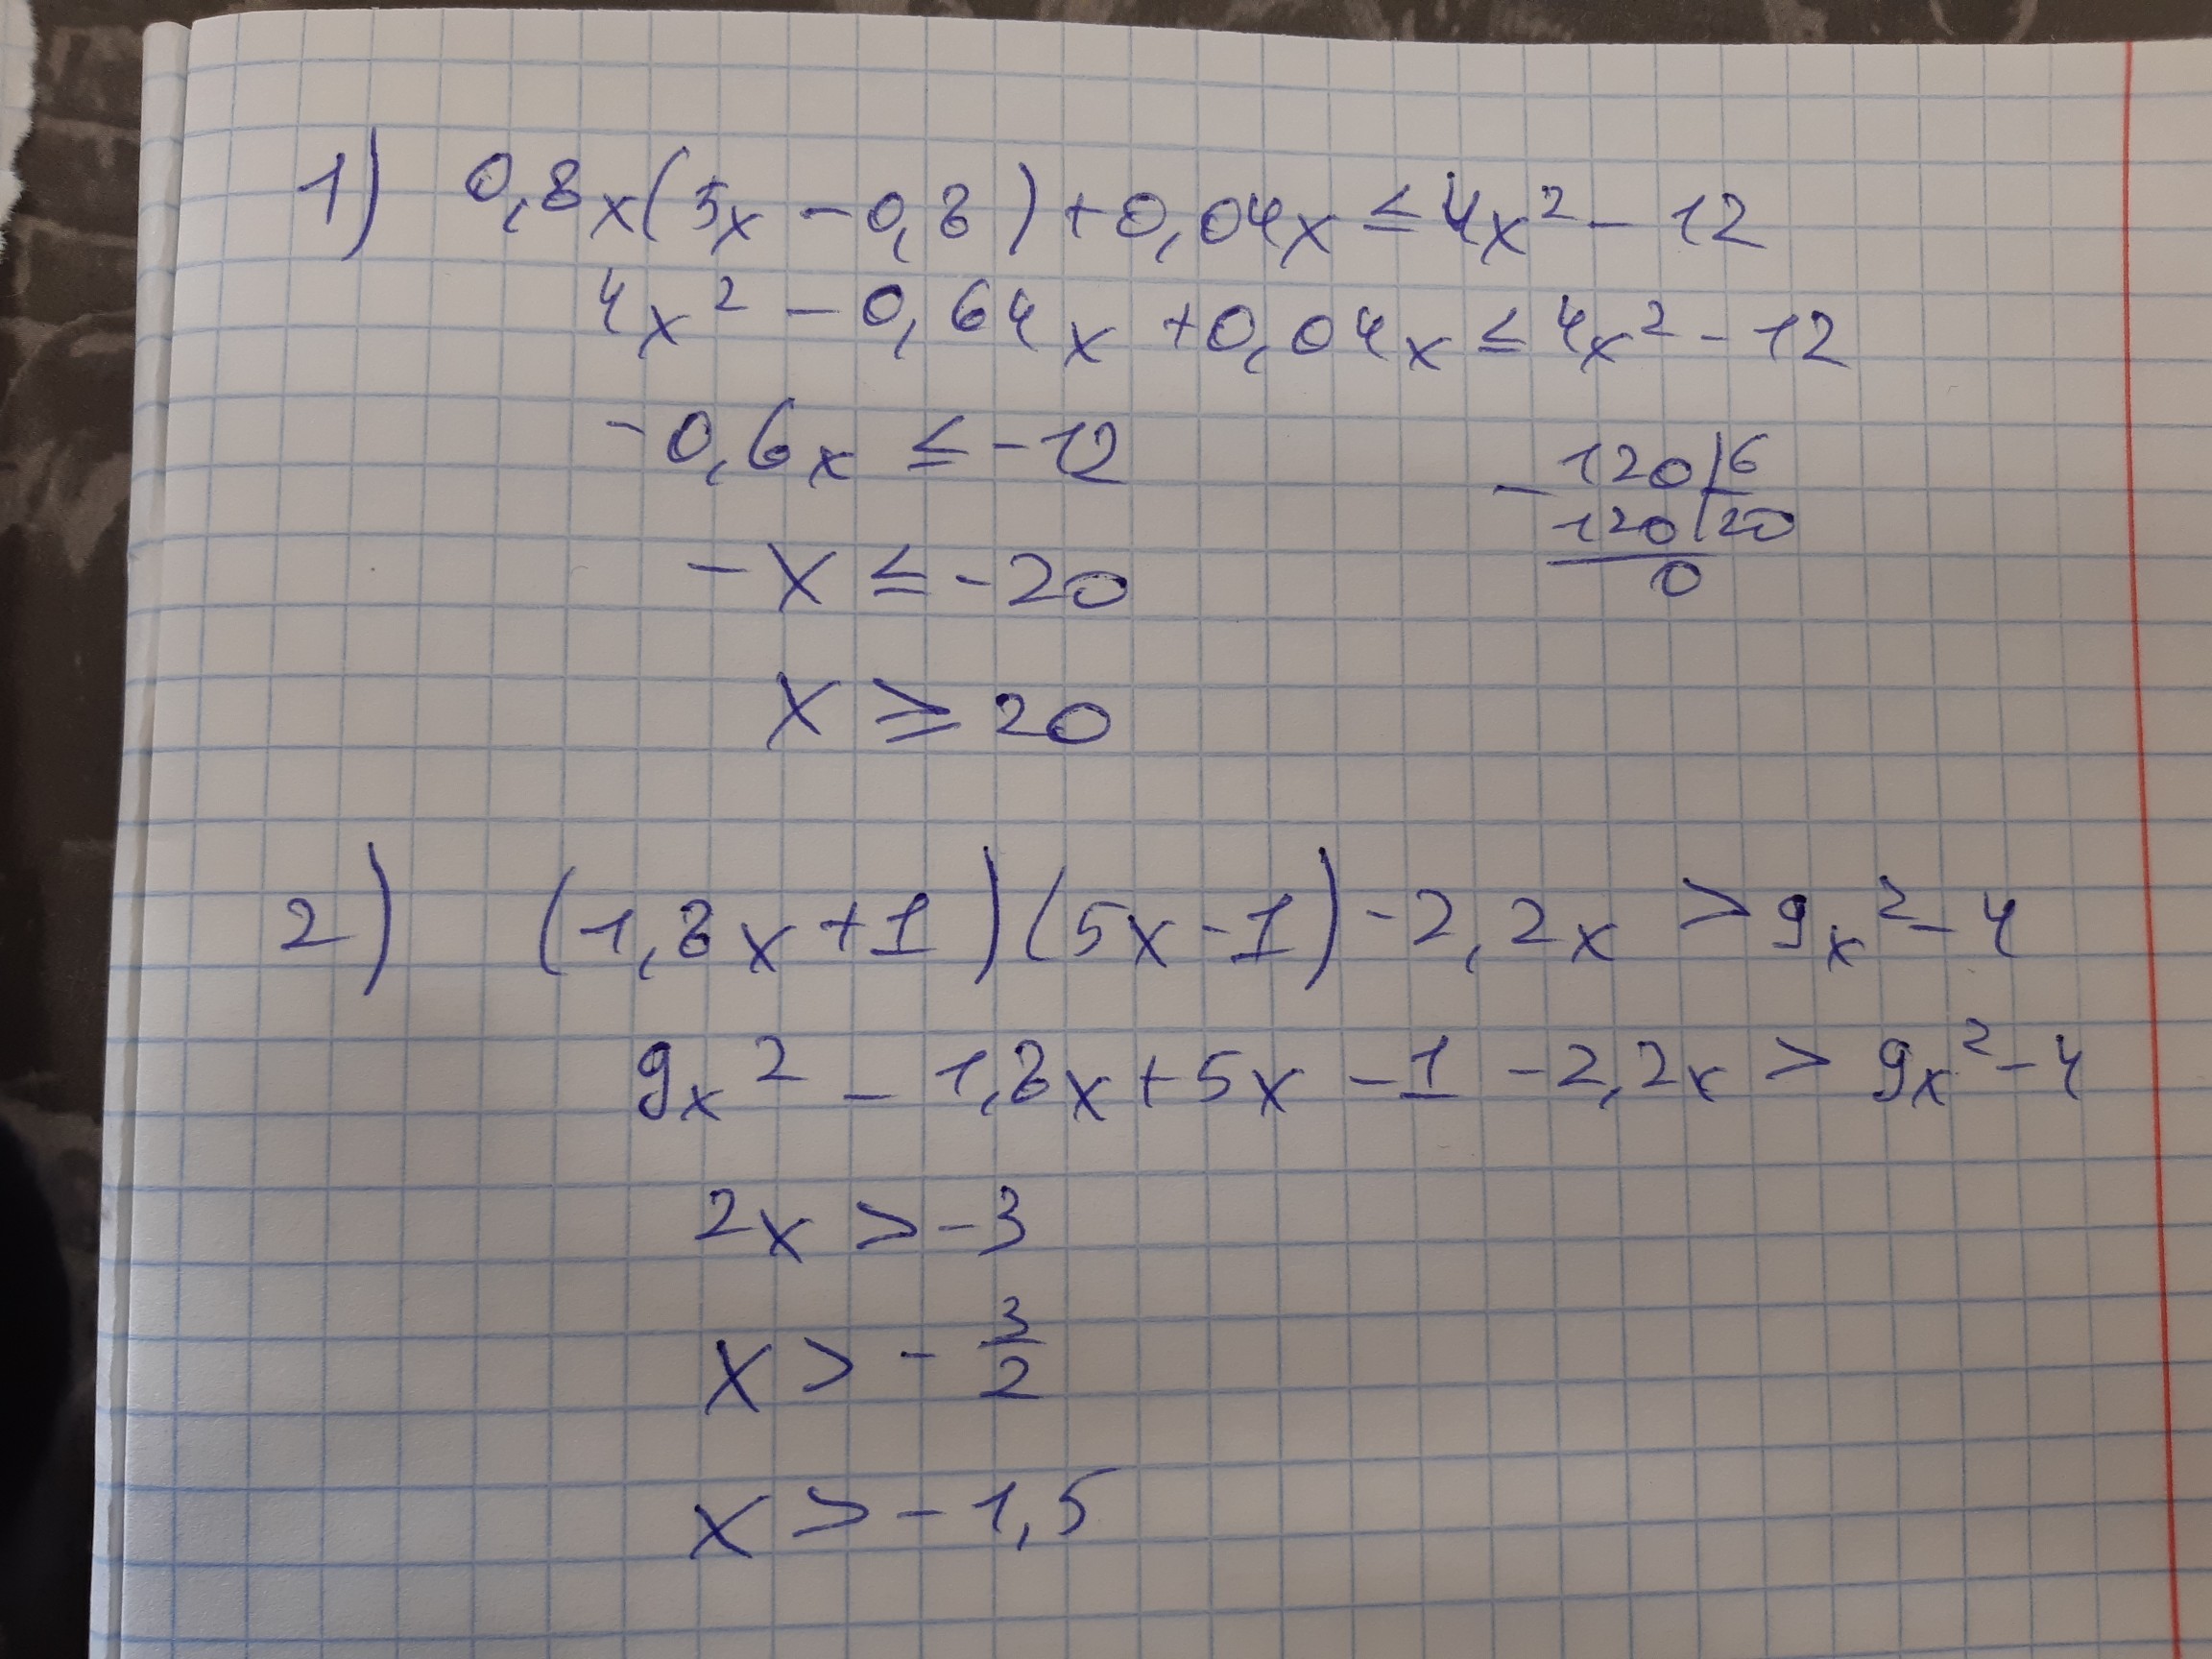 1) 0,8x(5x - 0,8) + 0,04x ≤ 4x² - 12
4x² - 0,64x + 0,04x ≤ 4x² - 12
-0,6x ≤ -12
- 120 | 6
120 | 20
0
-x ≤ -20
x ≥ 20
2) (1,8x + 1)(5x - 1) - 2,2x > 9x² - 4
9x² - 1,8x + 5x - 1 - 2,2x > 9x² - 4
2x > -3
x > - 3/2
x > -1,5